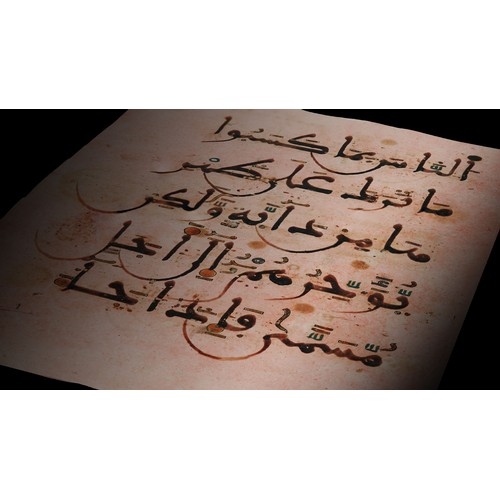 الناس بما كسبوا
ما ترك على ظهر
ها من دابة ولكن
يؤخرهم إلى أجل
مسمى فإذا جا